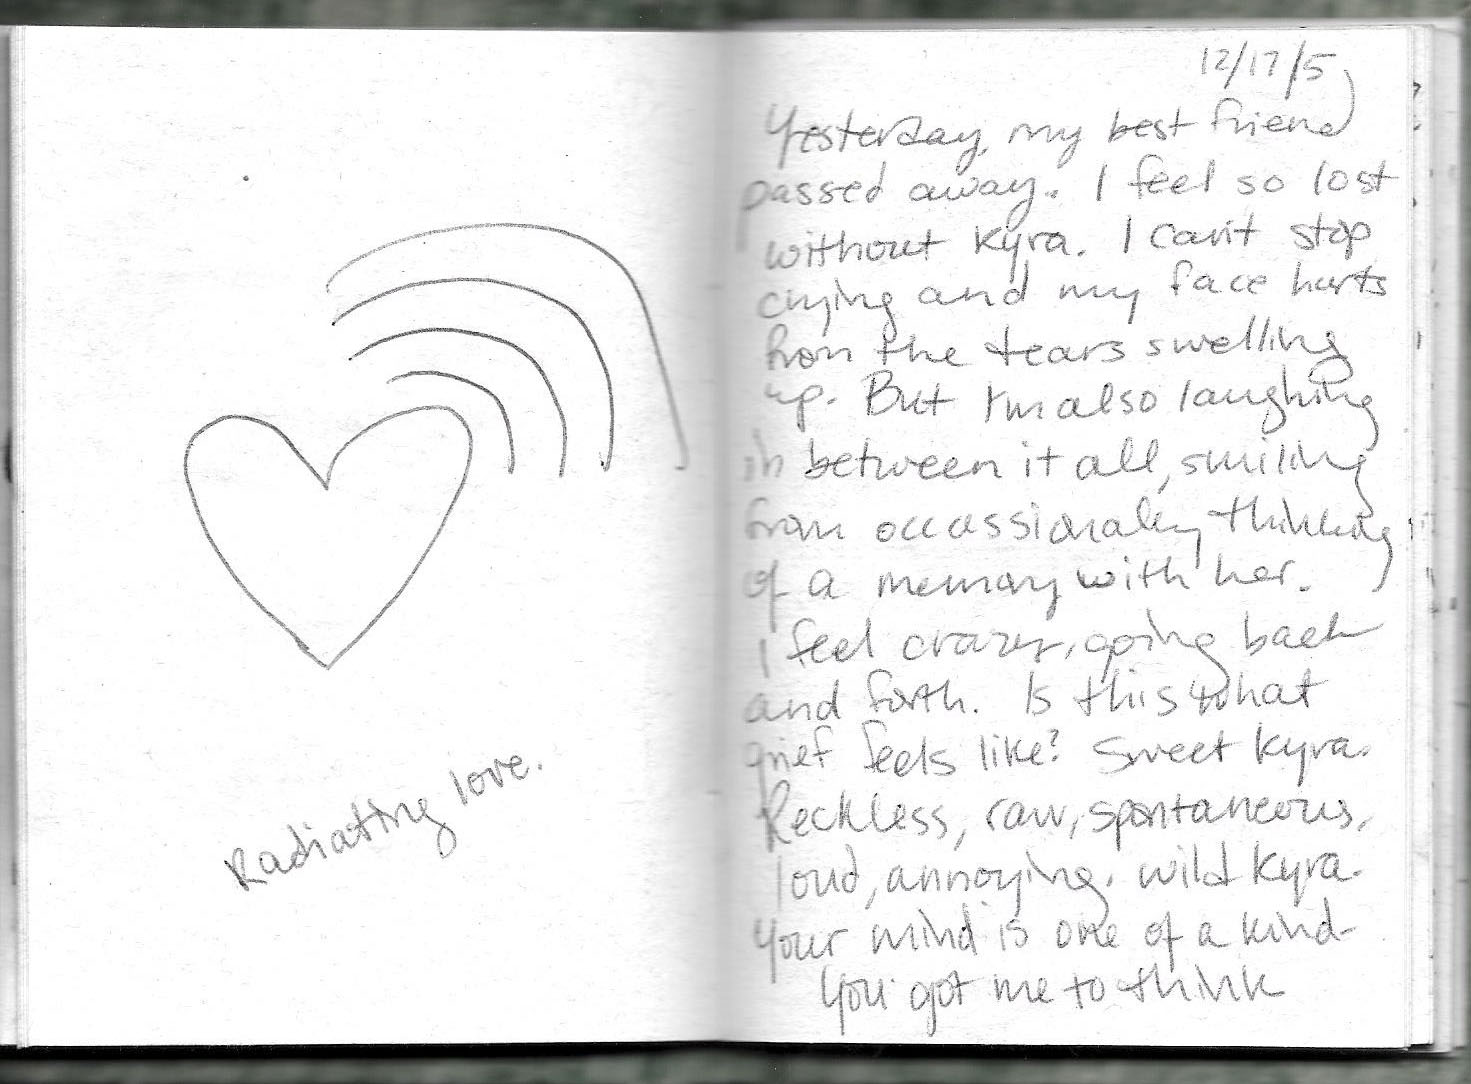 Radiating love.
12/17/5
Yesterday, my best friend
passed away. I feel so lost
without Kyra. I can't stop
crying and my face hurts
from the tears swelling
up. But I'm also laughing
in between it all, smiling
from occassionaly thinking
of a memory with her.
I feel crazy, going back
and forth. Is this what
grief feels like? Sweet Kyra.
Reckless, raw, spontaneous,
loud, annoying. Wild Kyra.
Your mind is one of a kind-
You got me to think